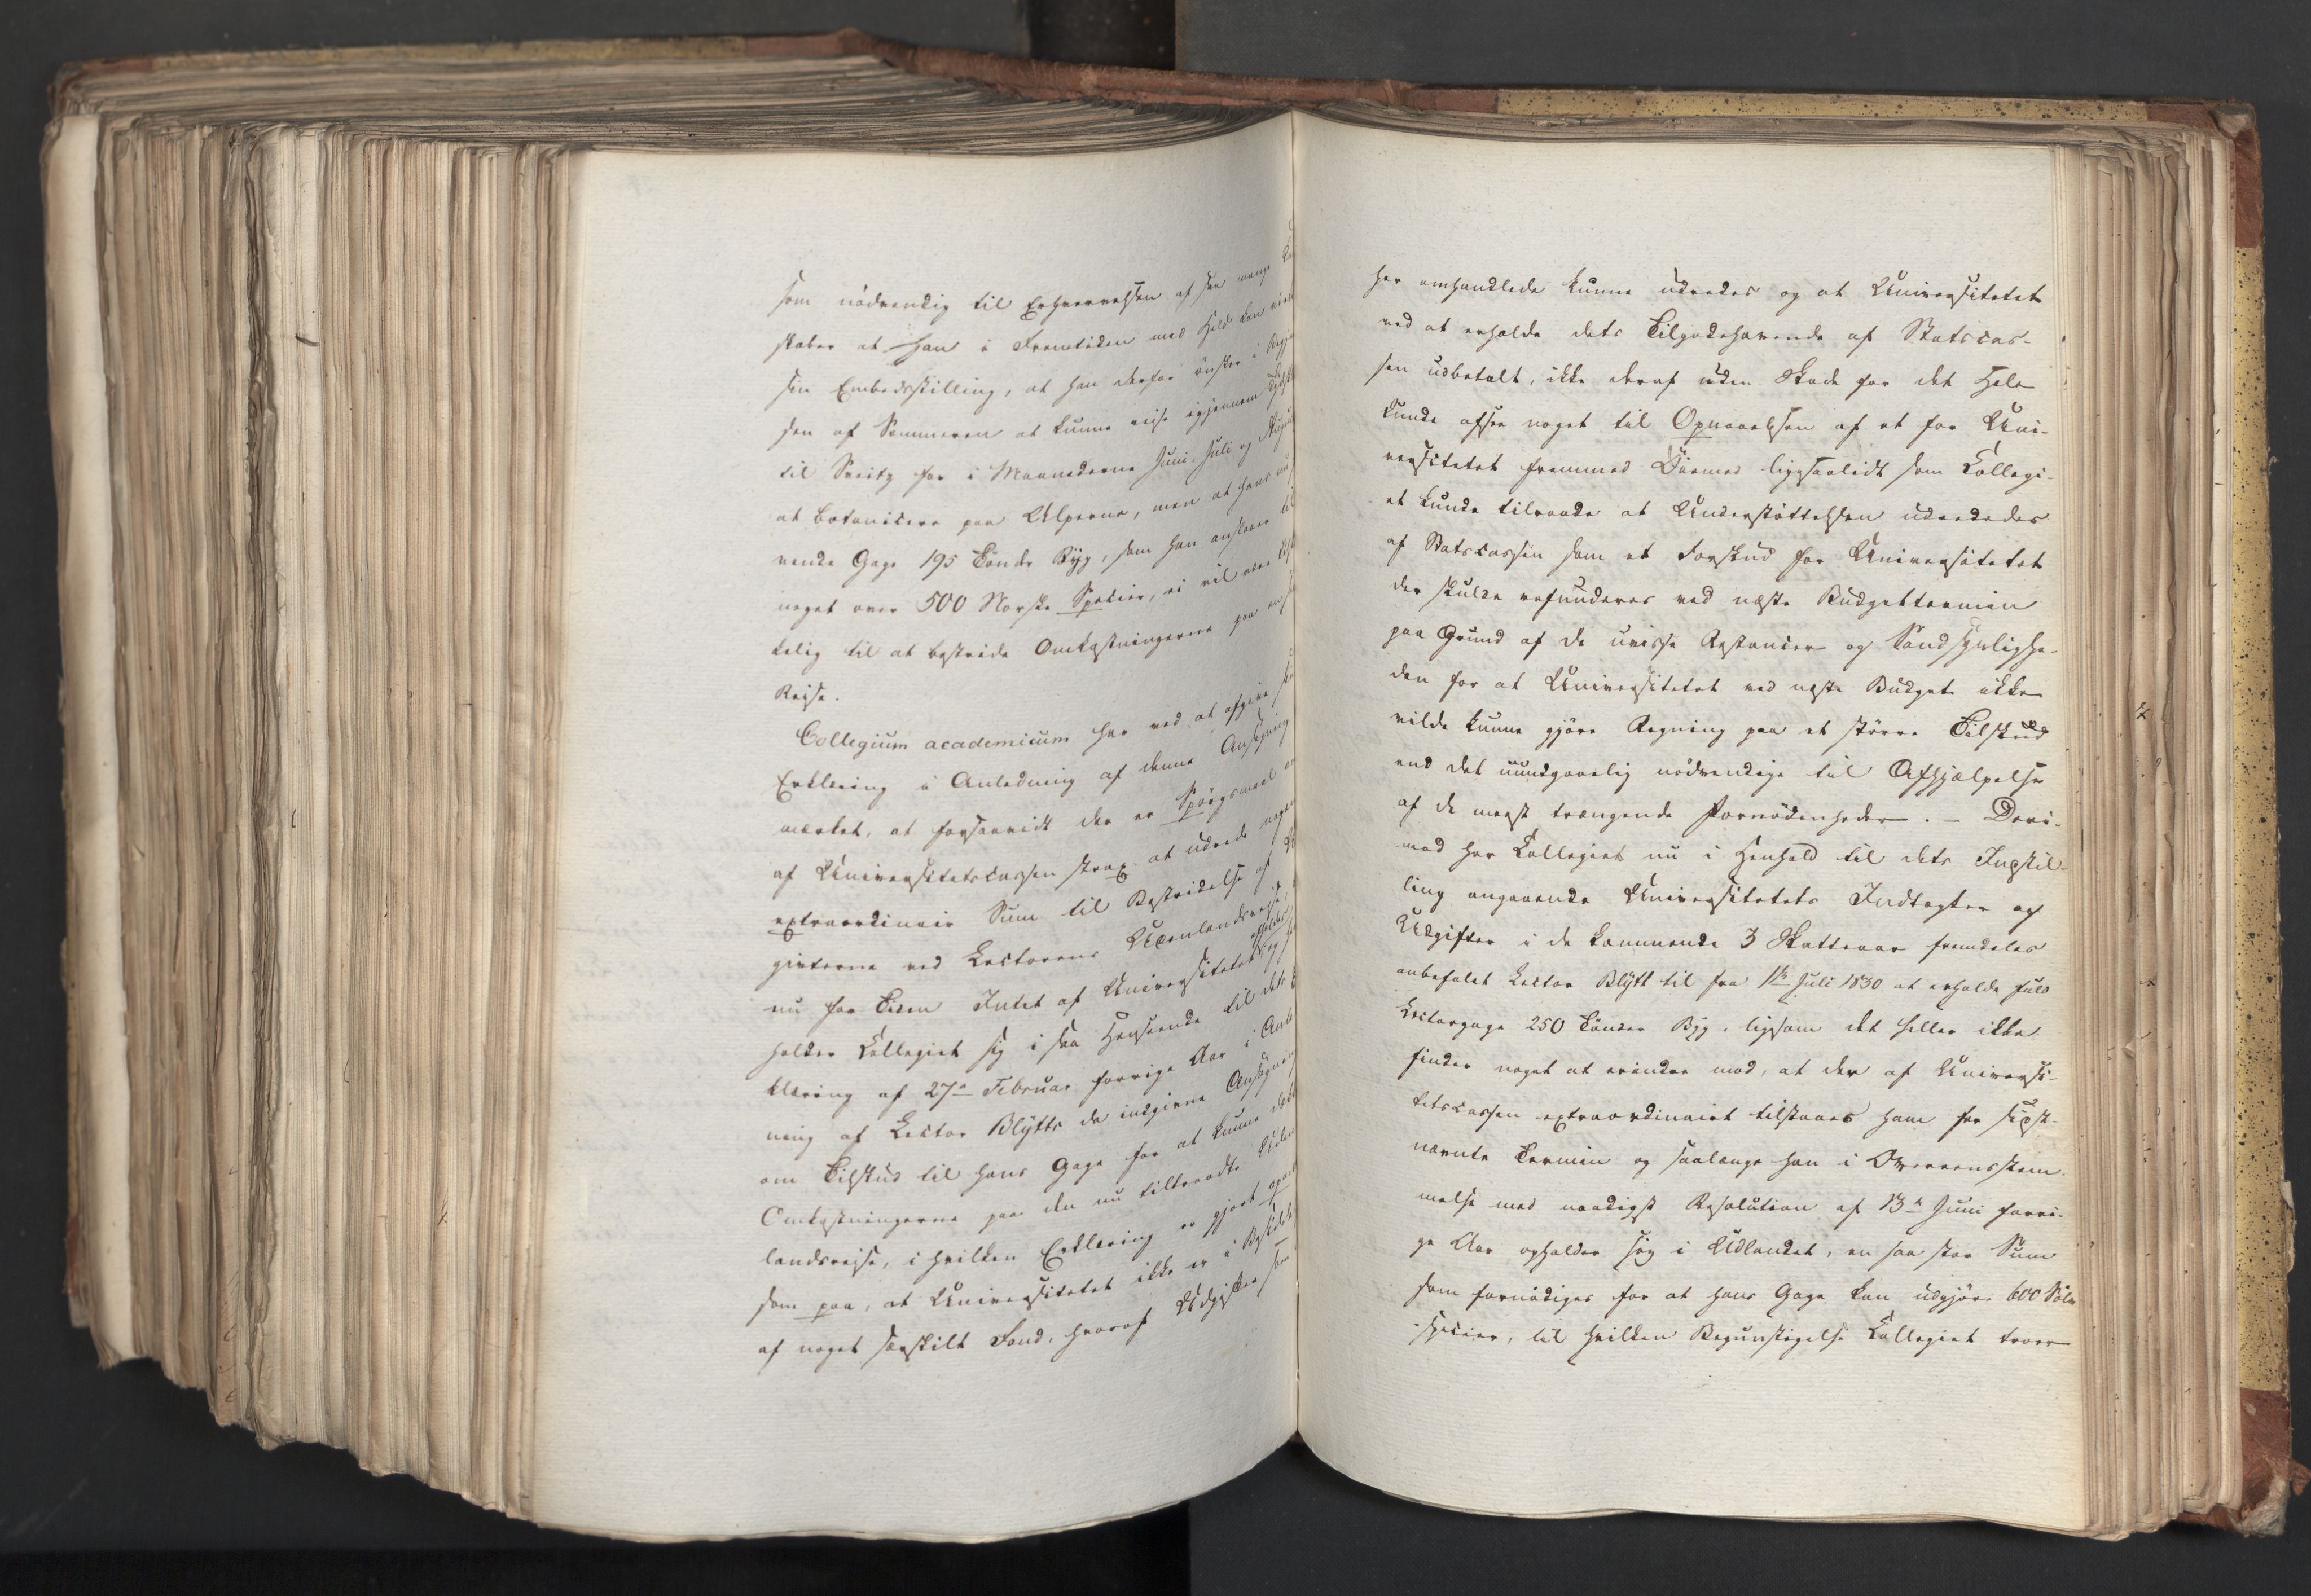 som nödvendig til Erhvervelsen af saa mange
skaber at han i Fremtiden med Held kan
sin Embedsstilling, at han derfor önsker i
sen af Sommeren at kunne reise igjennem
til Sveitz for i Maanederne Juni, Juli og August
at botanicere paa Alperne, men at hans
rende Gage 195 Tönder Byg, som han anslaaer til
noget over 500 Norske Specier, ei vil være
kelig til at bestride Omkostningerne paa en
Reise.
Collegium academicum har ved at afgive
Erklæring i Anledning af denne Ansögning
mærket, at forsaavidt der er Spörgsmaal
af Universitetscassen strax at udrede nogen
extraordinair Sum til Bestridelse af
givterne ved Lectorens Udenlandsreise,
nu for Tiden Intet af Universitetet
holder Collegiet sig i saa Henseende til dets
klæring af 27de Februar forrige Aar i
ning af Lector Blytts da indgivne Ansögning
om Tilskud til hans Gage for at kunne
Omkostningerne paa den nu tiltraadte
landsreise, i hvilken Erklæring er gjort
som paa, at Universitetet ikke er i Besiddelse
af noget særskilt Fond, hvoraf Udgifter som
her omhandlede kunne udredes og at Universitetet
ved at erholde dets Tilgodehavende af Statscas-
sen udbetalt, ikke deraf uden Skade for det Hele
kunde afsee noget til Opnaaelsen af et for Uni-
versitetet fremmed Öiemed ligesaalidt som Collegi-
et kunde tilraade at Understöttelsen udrededes
af Statscassen som et Forskud for Universitetet
der skulde refunderes ved næste Budgettermin
paa Grund af de uvisse Restancer og Sandsynlighe-
den for at Universitetet ved næste Budget ikke
vilde kunne gjöre Regning paa et större Tilskud
end det uundgaaelig nödvendige til Afhjælpelse
af de meest trængende Fornödenheder. – Deri-
mod har Collegiet nu i Henhold til dets Indstil-
ling angaaende Universitetets Indtægter og
Udgifter i de kommende 3 Skatteaar fremdeles
anbefalet Lector Blytt til fra 1ste Juli 1830 at erholde fuld
Lectorgage 250 Tönder Byg, ligesom det heller ikke
finder noget at erindre mod, at der af Universi-
tetscassen extraordinairt tilstaaes ham for sidst-
nævnte Termin og saalænge han i Overeensstem-
melse med naadigst Resolution af 13de Juni forri-
ge Aar opholder sig i Udlandet, en saa stor Sum
som fornödiges for at hans Gage kan udgjöre 600 Sölv
specier, til hvilken Begunstigelse Collegiet troer